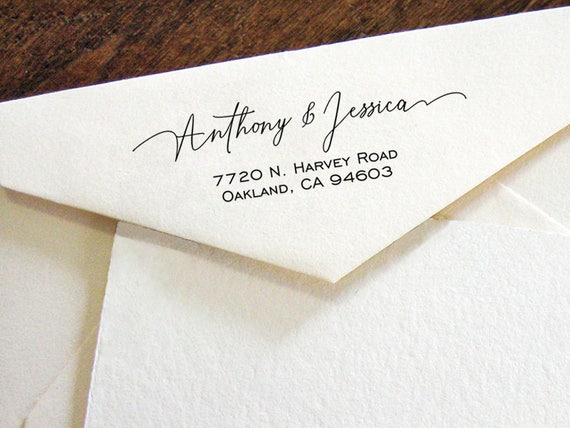 Anthony & Jessica
7720 N. Harvey Road
Oakland, CA 94603